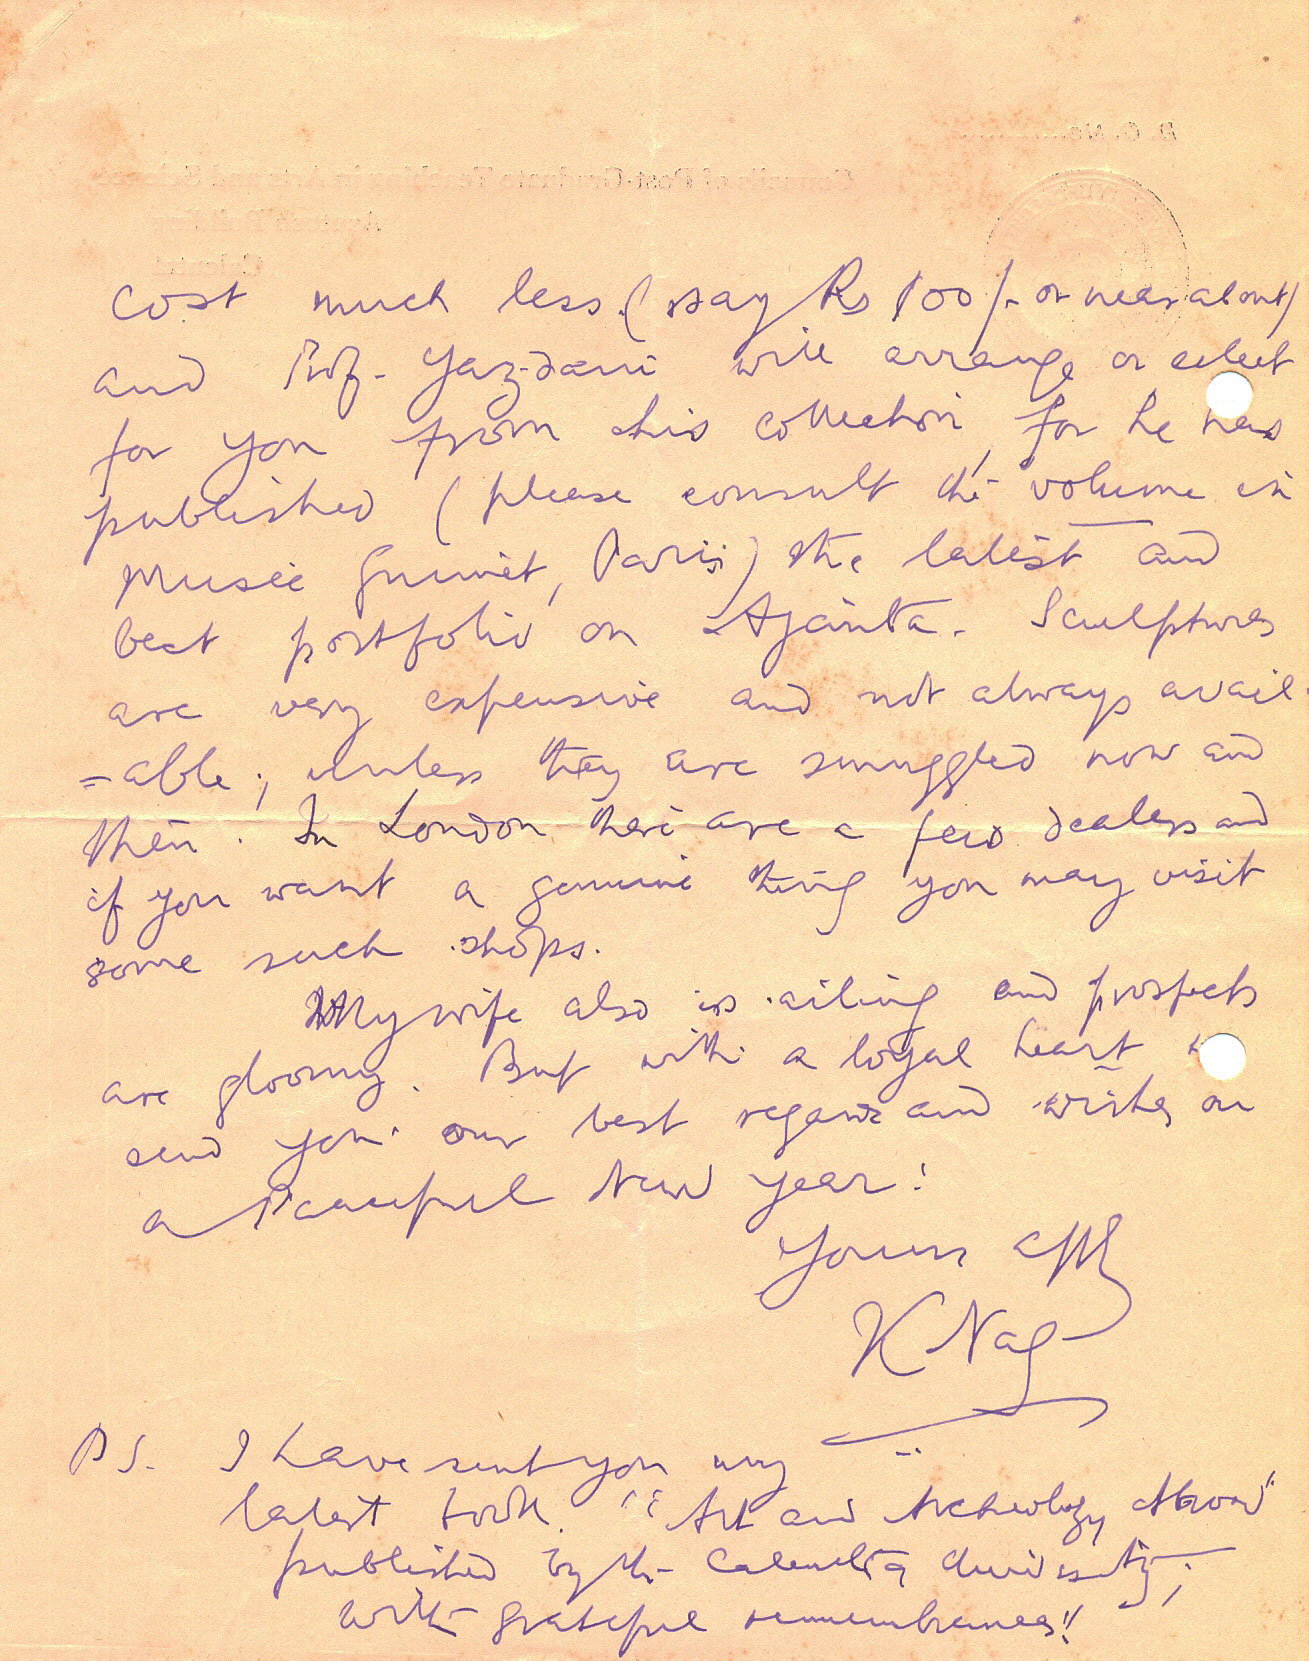 cost much less (say Rs 100/- or near about)
and Prof. Yazdani will arrange or select
for you from his collection, for he has
published (please consult the volume in
Musée Guimet, Paris) the latest and
best portfolio on Ajanta. Sculptures
are very expensive and not always avail-
=able; unless they are smuggled now and
then. In London there are a few dealers and
if you want a genuine thing you may visit
some such shops.
My wife also is ailing and prospects
are gloomy. But with a loyal heart
send you our best regards and wishes on
a Peaceful New Year!
Yours
K Nag
P.S. I have sent you my
latest book "Art and Archeology Abroad"
published by the Calcutta University;
with grateful remembrances!!